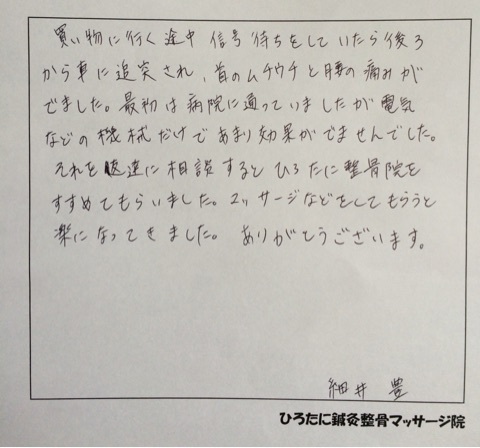 買い物に行く途中 信号待ちをしていたら後ろ
から車に追突され、首のムチウチと腰の痛みが
でました。最初は病院に通っていましたが電気
などの機械だけであまり効果がでませんでした。
それを友達に相談するとひろたに整骨院を
すすめてもらいました。マッサージなどをしてもらうと
楽になってきました。ありがとうございます。
細井 豊
ひろたに鍼灸整骨マッサージ院